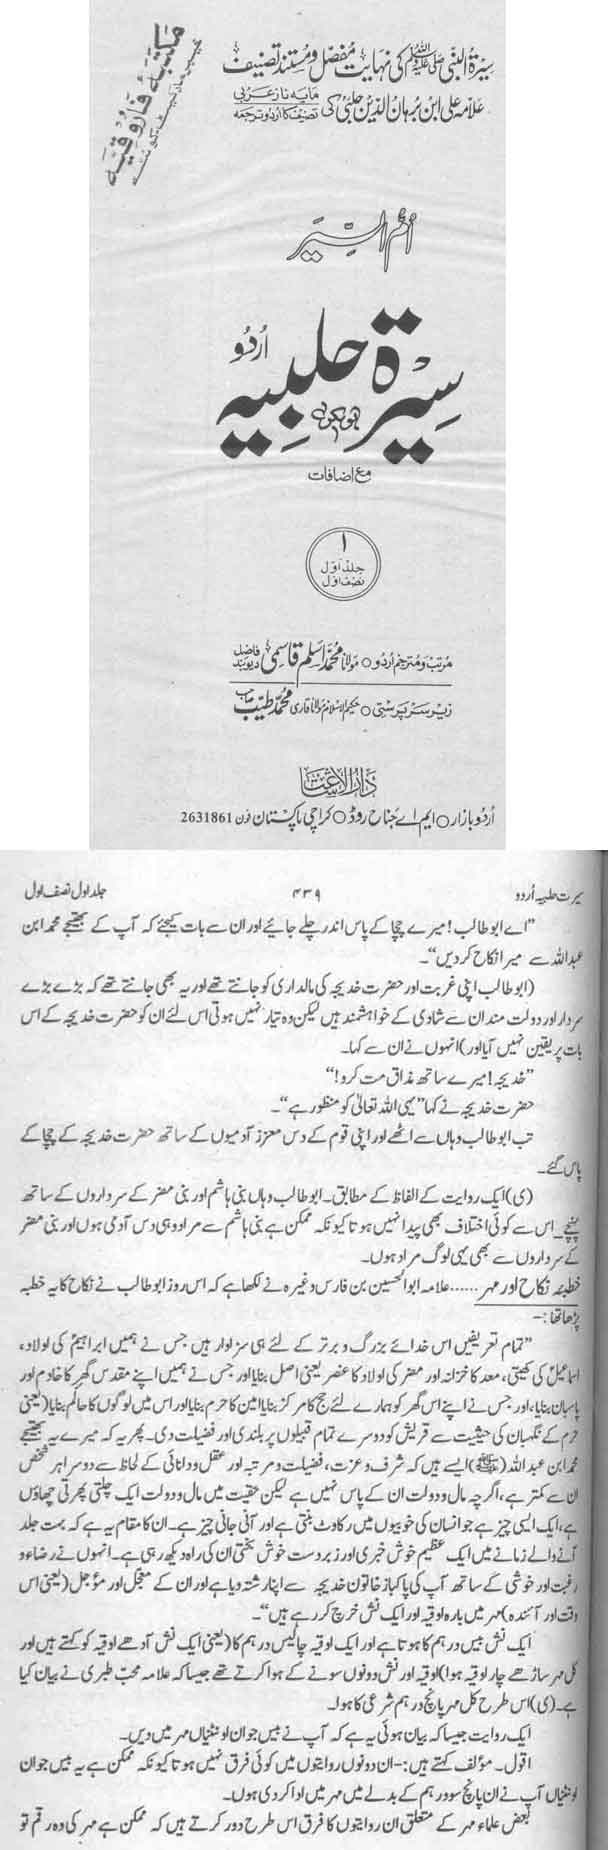 سیرۃ النبی صلی اللہ علیہ وسلم کی نہایت مفصل و مستند تصنیف
علامہ علی ابن برہان الدین حلبیؒ کی مایہ ناز عربی تصنیف کا اردو ترجمہ
مکتبہ فاروقیہ
اُمُّ السِّیَر
سِیرۃ حلبیہ اُردُو
مع اضافات
۱
جلد اوّل
نصف اوّل
مرتب و مترجم اردو ○ مولانا محمد اسلم قاسمی فاضل دیوبند
زیر سرپرستی ○ حکیم الاسلام مولانا قاری محمد طیب صاحب
دارالاشاعت
اُردو بازار ○ ایم اے جناح روڈ ○ کراچی پاکستان فون 2631861
سیرت حلبیہ اُردو ۴۳۹ جلد اول نصف اول
”اے ابو طالب! میرے چچا کے پاس اندر چلے جائیے اور ان سے بات کیجئے کہ آپ کے بھتیجے محمد ابن
عبداللہ سے میرا نکاح کر دیں“۔
(ابوطالب اپنی غربت اور حضرت خدیجہ کی مالداری کو جانتے تھے اور یہ بھی جانتے تھے کہ بڑے بڑے
سردار اور دولت مند ان سے شادی کے خواہشمند ہیں لیکن وہ تیار نہیں ہوتی اس لئے ان کو حضرت خدیجہ کے اس
بات پر یقین نہیں آیا اور) انہوں نے ان سے کہا۔
”خدیجہ! میرے ساتھ مذاق مت کرو!“
حضرت خدیجہ نے کہا ”یہی اللہ تعالیٰ کو منظور ہے“۔
تب ابوطالب وہاں سے اٹھے اور اپنی قوم کے دس معزز آدمیوں کے ساتھ حضرت خدیجہ کے چچا کے
پاس گئے۔
(ی) ایک روایت کے الفاظ کے مطابق۔ ابوطالب وہاں بنی ہاشم اور بنی مضر کے سرداروں کے ساتھ
پہنچے۔ اس سے کوئی اختلاف بھی پیدا نہیں ہوتا کیونکہ ممکن ہے بنی ہاشم سے مراد وہی دس آدمی ہوں اور بنی مضر
کے سرداروں سے بھی یہی لوگ مراد ہوں۔
خطبۂ نکاح اور مہر ...... علامہ ابوالحسین بن فارس وغیرہ نے لکھا ہے کہ اس روز ابوطالب نے نکاح کا یہ خطبہ
پڑھا تھا:۔
”تمام تعریفیں اس خدائے بزرگ و برتر کے لئے ہی سزاوار ہیں جس نے ہمیں ابراہیمؑ کی اولاد،
اسماعیلؑ کی کھیتی، معد کا خزانہ اور مضر کی اولاد کا عنصر یعنی اصل بنایا اور جس نے ہمیں اپنے مقدس گھر کا خادم اور
پاسبان بنایا، اور جس نے اپنے اس گھر کو ہمارے لئے حج کا مرکز بنایا امن کا حرم بنایا اور اس میں لوگوں کا حاکم بنایا (یعنی
حرم کے نگہبان کی حیثیت سے قریش کو دوسرے تمام قبیلوں پر بلندی اور فضیلت دی۔ پھر یہ کہ میرے یہ بھتیجے
محمد ابن عبداللہ (ﷺ) ایسے ہیں کہ شرف و عزت، فضیلت و مرتبہ اور عقل و دانائی کے لحاظ سے دوسرا ہر شخص
ان سے کمتر ہے، اگرچہ مال و دولت ان کے پاس نہیں ہے لیکن حقیقت میں مال و دولت ایک چلتی پھرتی چھاؤں
ہے، ایک ایسی چیز ہے جو انسان کی خوبیوں میں رکاوٹ بنتی ہے اور آنی جانی چیز ہے۔ ان کا مقام یہ ہے کہ بہت جلد
آنے والے زمانے میں ایک عظیم خوش خبری اور زبردست خوش بختی ان کی راہ دیکھ رہی ہے۔ انہوں نے رضاء و
رغبت اور خوشی کے ساتھ آپ کی پاکباز خاتون خدیجہ سے اپنا رشتہ دیا ہے اور ان کے معجل اور مؤجل (یعنی اس
وقت اور آئندہ) مہر میں بارہ اوقیہ اور ایک نش خرچ کر رہے ہیں“۔
ایک نش بیس درہم کا ہوتا ہے اور ایک اوقیہ چالیس درہم کا (یعنی ایک نش آدھے اوقیہ کو کہتے ہیں اور
کل مہر ساڑھے چار اوقیہ ہوا) اوقیہ اور نش دونوں سونے کے ہوا کرتے تھے جیسا کہ علامہ محب طبری نے بیان کیا
ہے۔ (ی) اس طرح کل مہر پانچ درہم شرعی کا ہوا۔
ایک روایت جیسا کہ بیان ہوئی یہ ہے کہ آپ نے بیس جوان اونٹنیاں مہر میں دیں۔
اقول۔ مؤلف کہتے ہیں:۔ ان دونوں روایتوں میں کوئی فرق نہیں ہوتا کیونکہ ممکن ہے یہ بیس جوان
اونٹنیاں آپ نے ان پانچ سو درہم کے بدلے میں مہر میں ادا کر دی ہوں۔
بعض علماء مہر کے متعلق ان روایتوں کا فرق اس طرح دور کرتے ہیں کہ ممکن ہے مہر کی وہ رقم تو